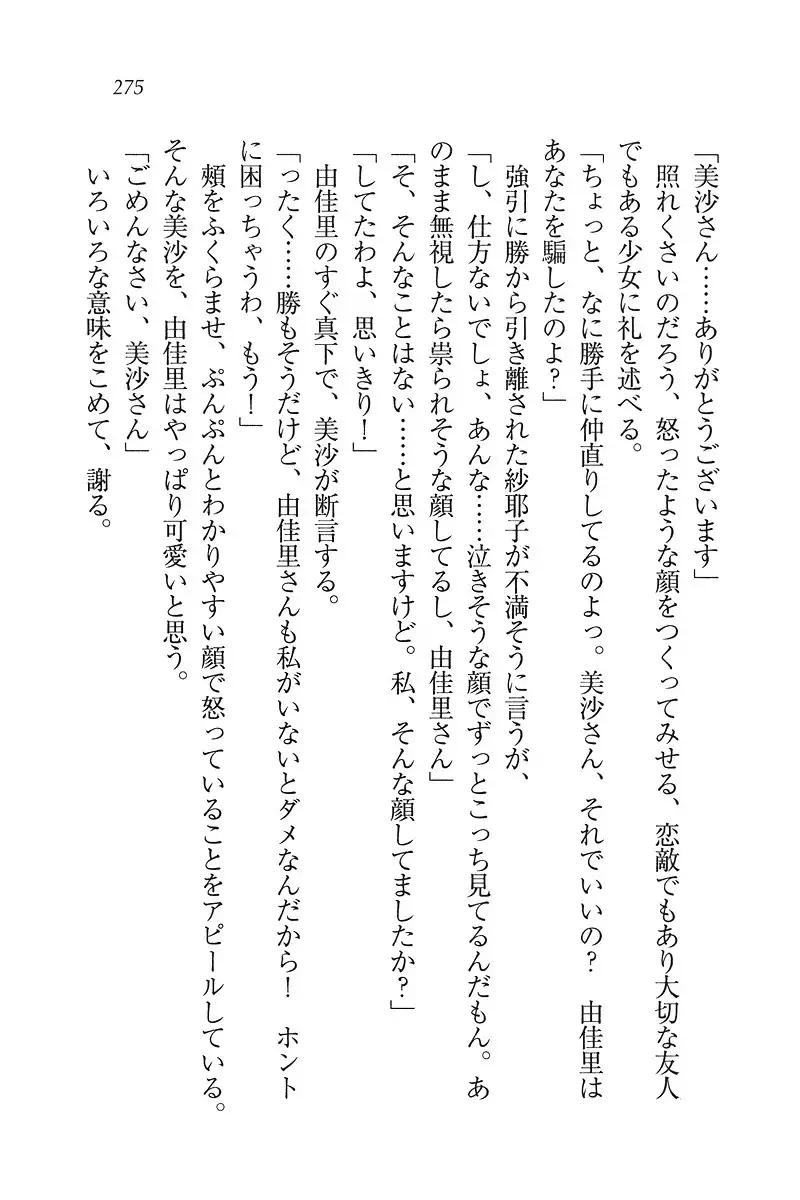 275
「美沙さん……ありがとうございます」
　照れくさいのだろう、怒ったような顔をつくってみせる、恋敵でもあり大切な友人
でもある少女に礼を述べる。
「ちょっと、なに勝手に仲直りしてるのよっ。美沙さん、それでいいの？　由佳里は
あなたを騙したのよ？」
　強引に勝から引き離された紗耶子が不満そうに言うが、
「し、仕方ないでしょ、あんな……泣きそうな顔でずっとこっち見てるんだもん。あ
のまま無視したら祟られそうな顔してるし、由佳里さん」
「そ、そんなことはない……と思いますけど。私、そんな顔してましたか？」
「してたわよ、思いきり！」
　由佳里のすぐ真下で、美沙が断言する。
「ったく……勝もそうだけど、由佳里さんも私がいないとダメなんだから！　ホント
に困っちゃうわ、もう！」
　頬をふくらませ、ぷんぷんとわかりやすい顔で怒っていることをアピールしている。
そんな美沙を、由佳里はやっぱり可愛いと思う。
「ごめんなさい、美沙さん」
　いろいろな意味をこめて、謝る。